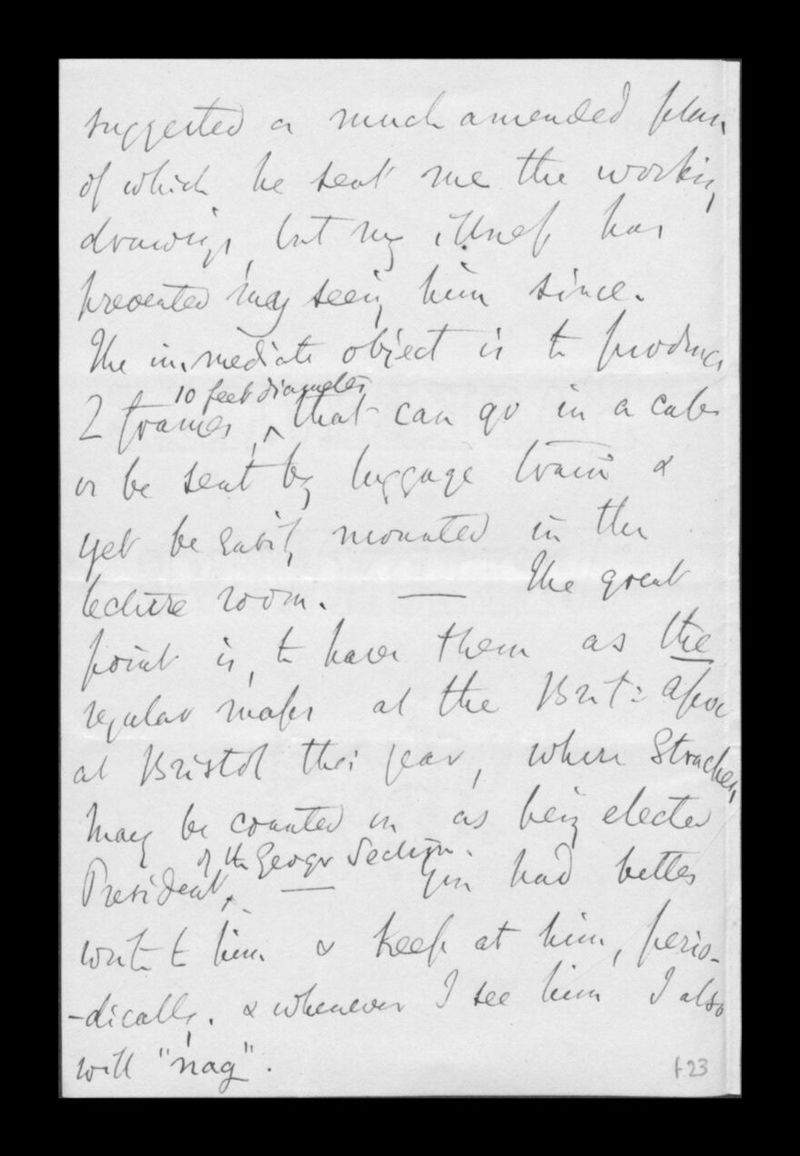 suggested a much amended plan
of which he sent me the working
drawings, but my illness has
prevented my seeing him since.
The immediate object is to produce
10 feet diameter
2 frames, ^ that can go in a cab
or be sent by luggage train &
yet be easily mounted in the
lecture room. — The great
point is, to have them as the
regular maps at the Brit: Assoc
at Bristol this year, where Strachey
may be counted on as being elected
of the Geogr Section.
President ^ — You had better
write to him & keep at him, perio-
-dically. & whenever I see him I also
will "nag".
f.23